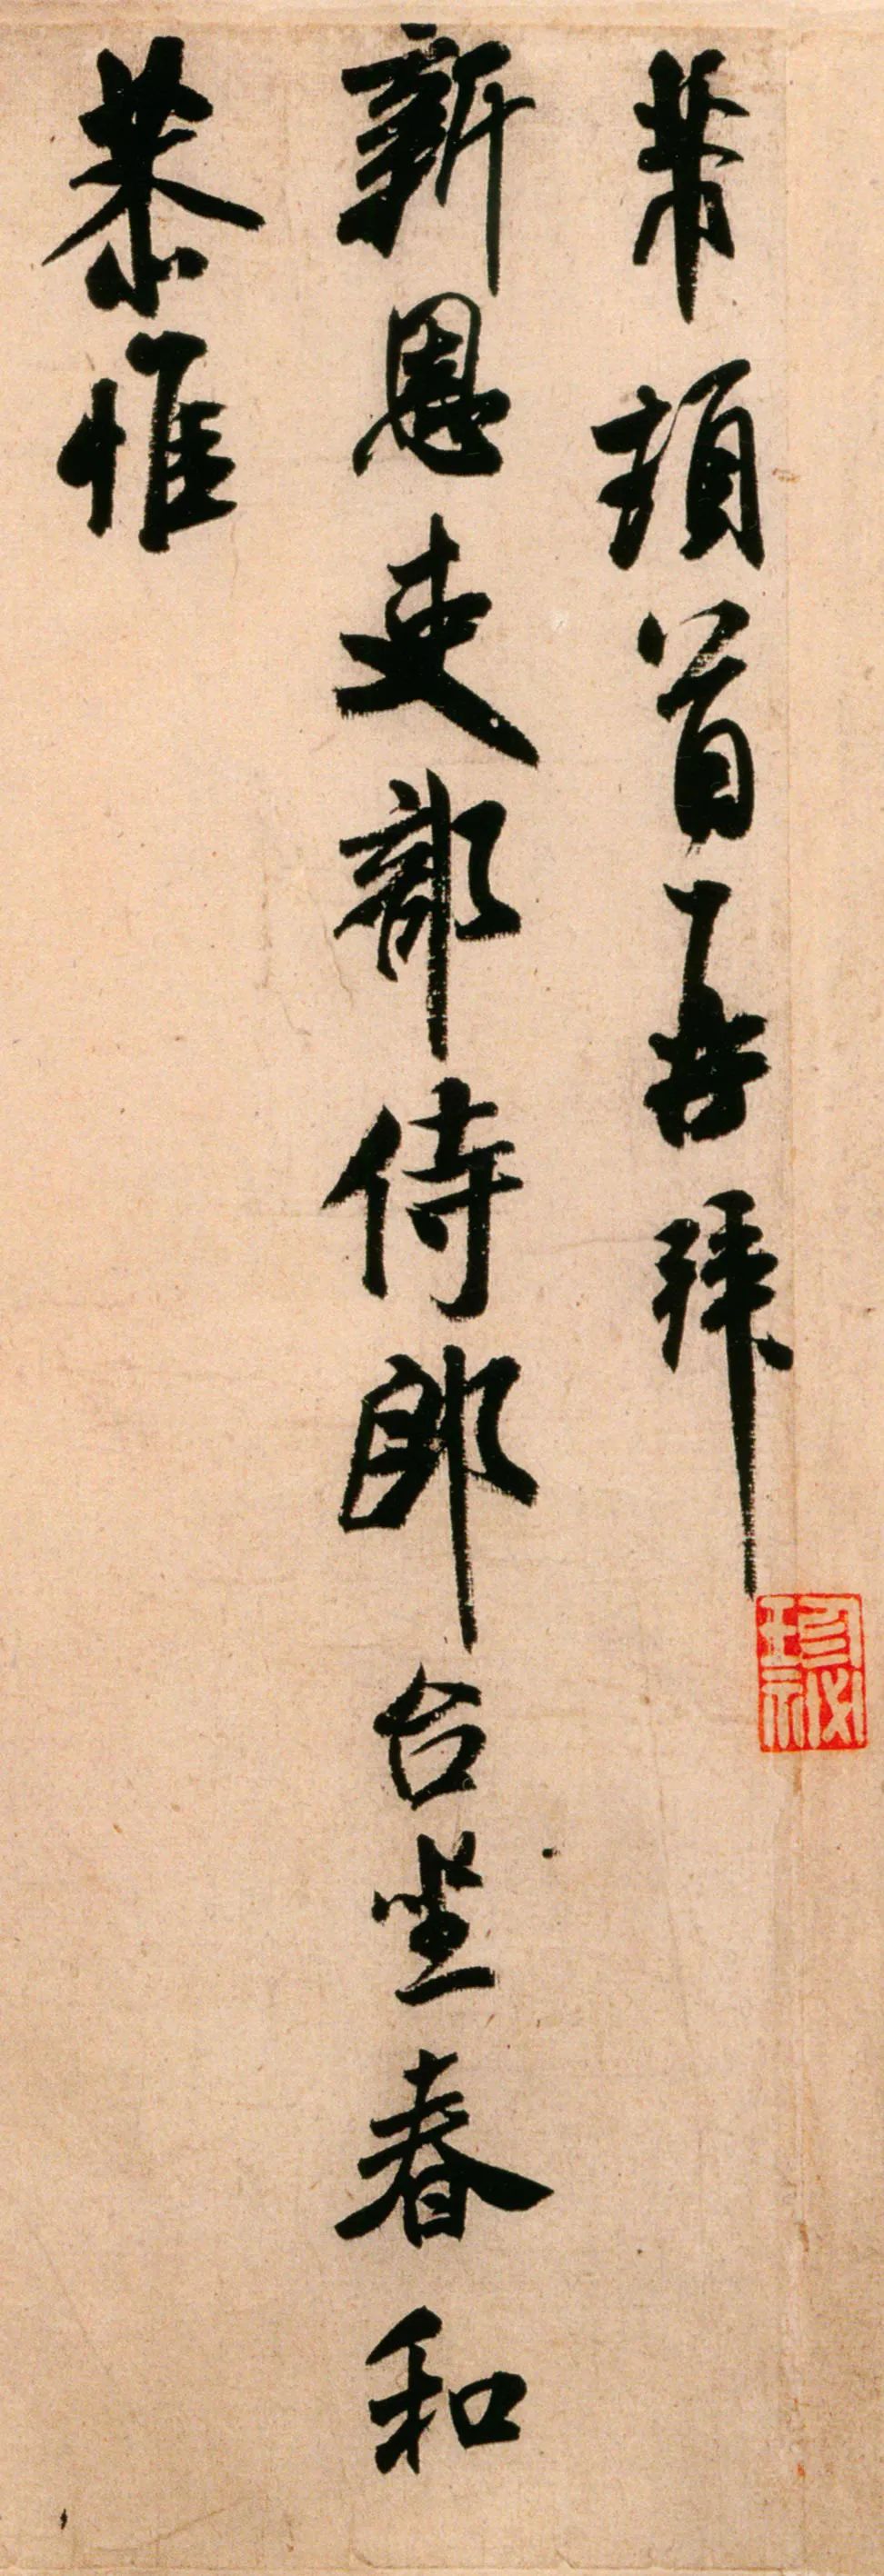 芾頓首再拜
新恩吏部侍郎台坐春和
恭惟
珍祕